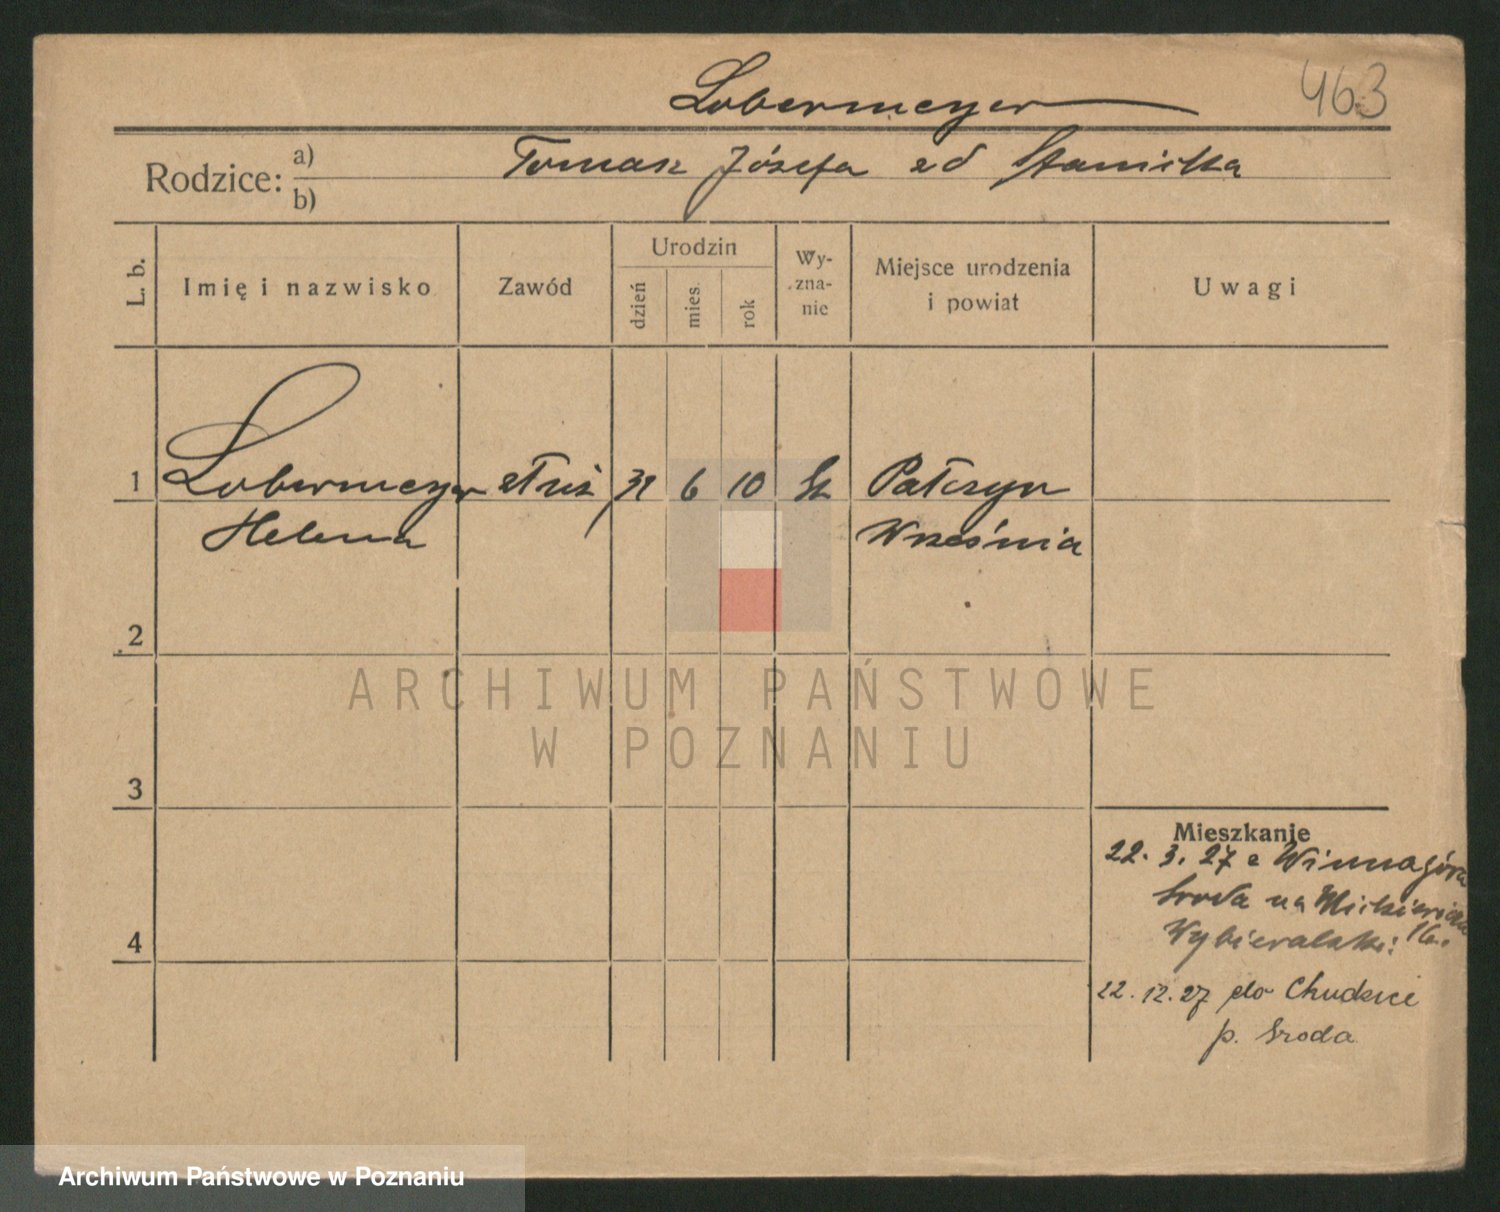 Lobermeyer
463
Rodzice: a) b)
Tomasz Józefa zd Stanicka
L. b.
Imię i nazwisko
Zawód
Urodzin
dzień
mies.
rok
Wy-
zna-
nie
Miejsce urodzenia
i powiat
Uwagi
1
Lobermeyer służ 31 6 10 Pałczyn
Helena Września
2
3
4
Mieszkanie
22. 3. 27 z Winnagóra
Środa na
Wybieralski
22. 12. 27 do Chudzice
p. Środa
ARCHIWUM PAŃSTWOWE
W POZNANIU
Archiwum Państwowe w Poznaniu